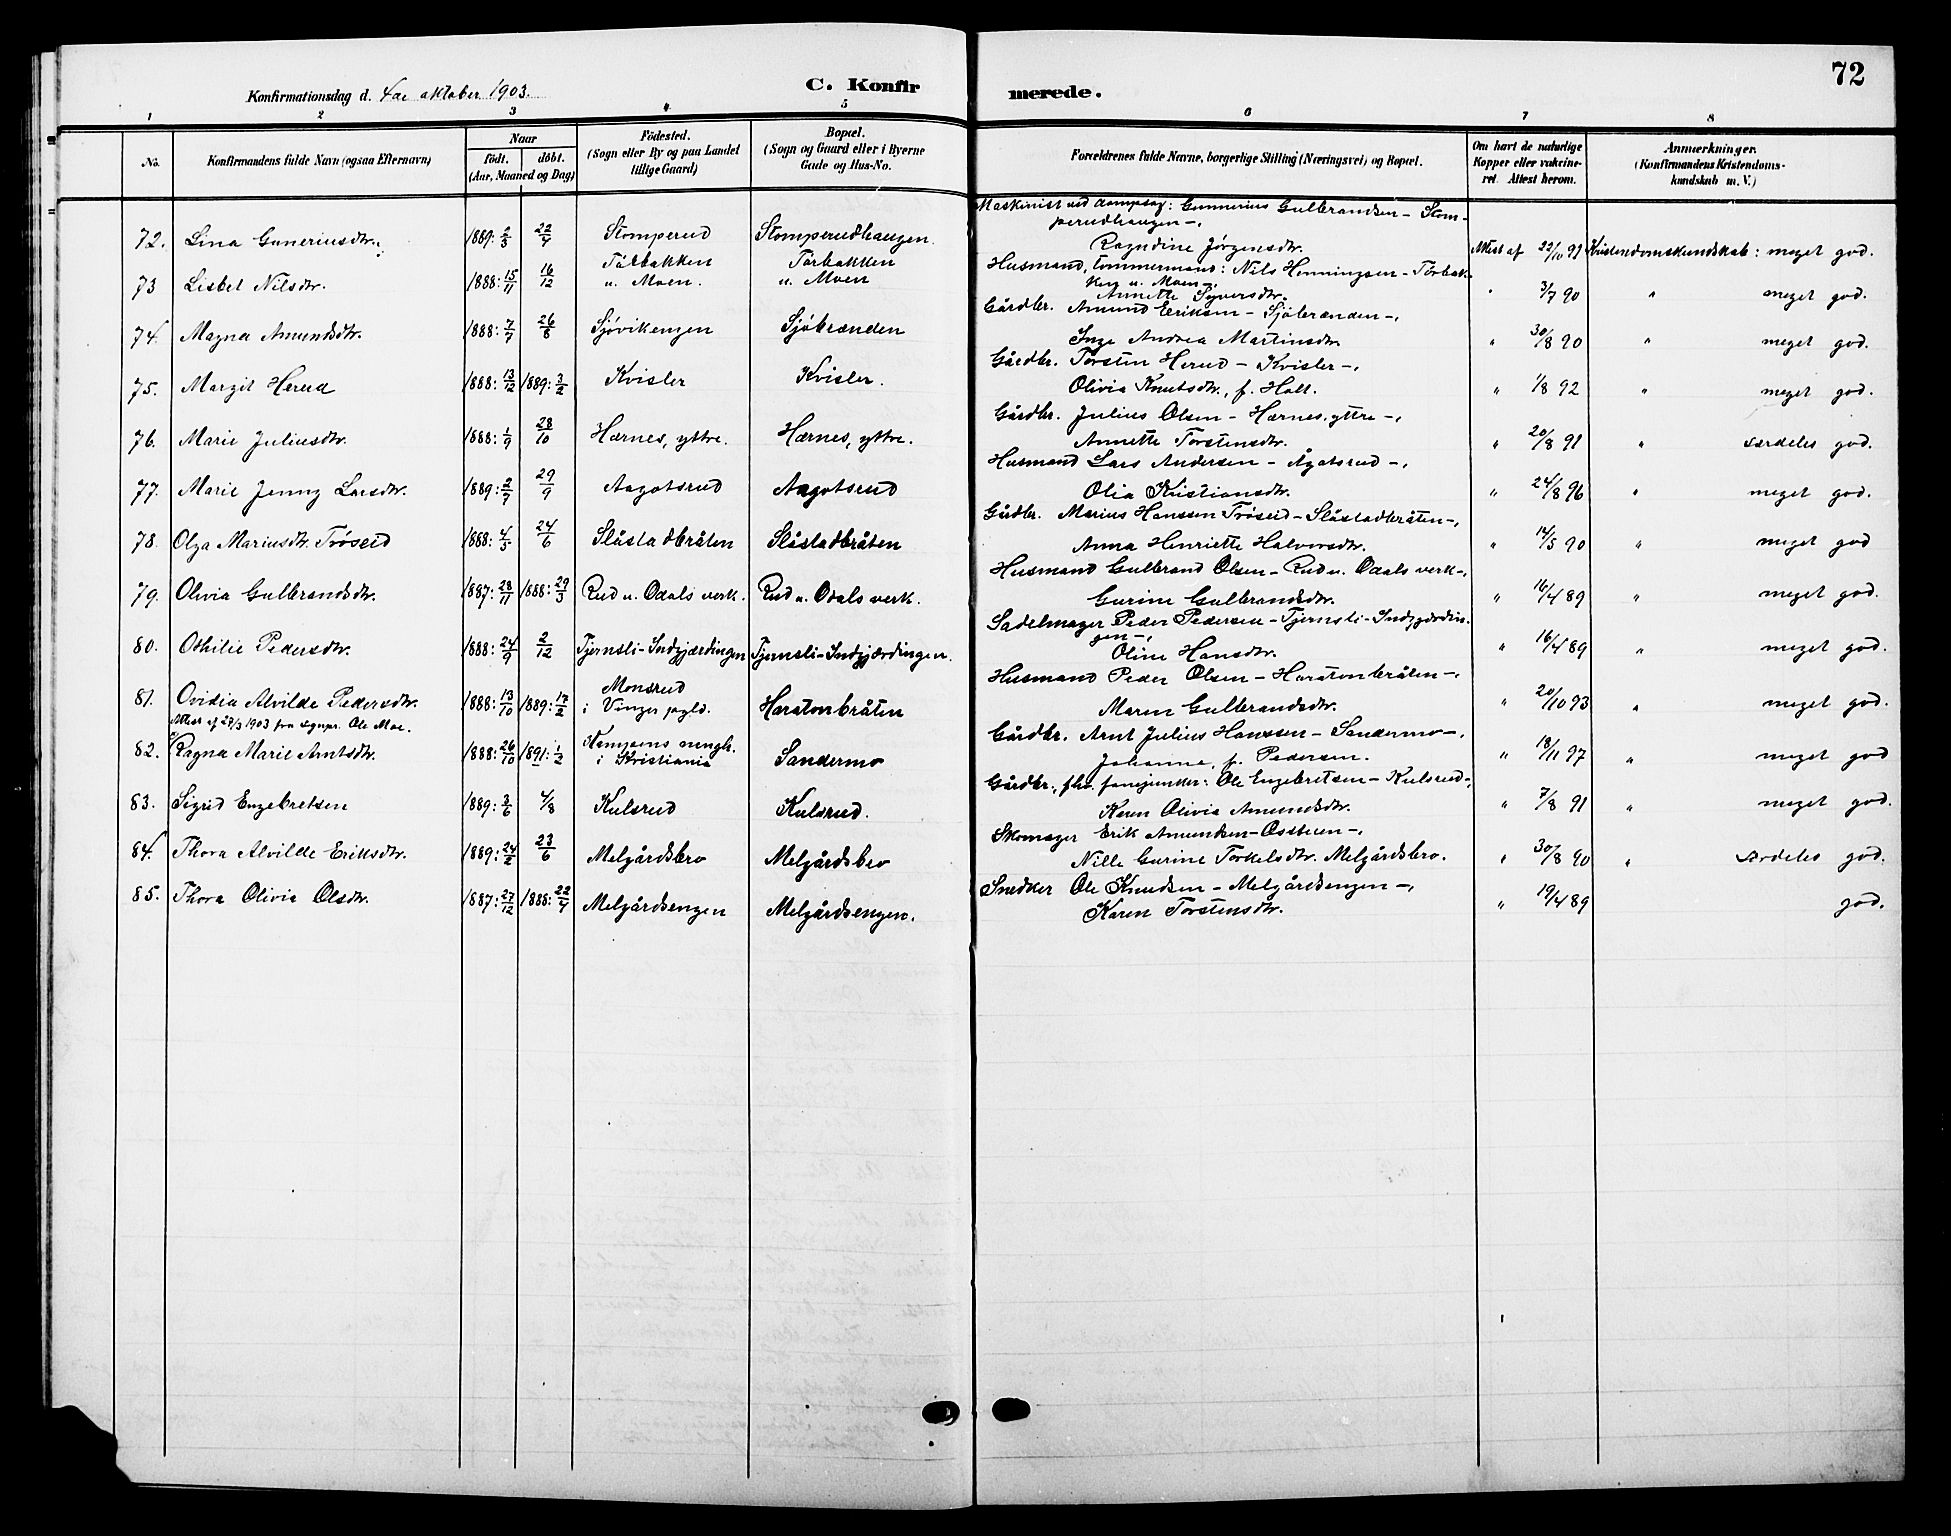 72
Konfirmationsdag d. 4de oktober 1903.
C. Konfirmerede.
1 2 3 4 5 6 7 8
No.
Konfirmandens fulde Navn (ogsaa Efternavn)
Naar
födt. döbt.
(Aar, Maaned og Dag)
Födested.
(Sogn eller By og paa Landet
tillige Gaard)
Bopæl.
(Sogn og Gaard eller i Byerne
Gade og Hus-No.
Forældrenes fulde Navne, borgerlige Stilling (Næringsvei) og Bopæl.
Om havt de naturlige
Kopper eller vakcine-
ret. Attest herom.
Anmærkninger.
(Konfirmandens Kristendoms-
kundskab m. V.)
Maskinist ved dampsag: Gunnerius Gulbrandsen - Stom-
perudhaugen -,
72. Lina Guneriusdtr. 1889: 2/3 22/4 Stomperud Stomperudhaugen. Ragndine Jørgensdtr. Attest af 22/10 91 Kristendomskundskab: meget god.
Husmand, tømmermand: Nils Henningsen - Torbak-
ken u. Moen -,
73 Lisbet Nilsdtr. 1888: 15/11 16/12 Torbakken u. Moen. Torbakken u. Moen Annette Syversdtr. " 3/7 90 " meget god.
Gårdbr. Amund Eriksen - Sjøbrænden -,
74. Magna Amundsdtr. 1888: 7/7 26/8 Sjøvikengen Sjøbrænden Inge Andrea Martinsdtr " 30/8 90 " meget god.
Gårdbr. Torsten Herud - Kvisler -,
75. Margit Herud 1888: 13/12 1889: 3/2 Kvisler Kvisler. Olivia Knutsdtr., f. Holt. " 1/8 92 " meget god.
Gårdbr. Julius Olsen - Hærnes, yttre -,
76. Marie Juliusdtr. 1888: 1/9 28/10 Hærnes, yttre. Hærnes, yttre. Annette Torstensdtr. " 20/8 91 " særdeles god.
Husmand Lars Andersen - Ågotsrud -,
77. Marie Jenny Larsdtr. 1889: 2/7 29/9 Aagotsrud Aagotsrud Olia Kristiansdtr. " 24/8 96 " meget god.
Gårdbr. Marius Hanssen Trøseid - Slåstadbråten -,
78. Olga Mariusdtr. Trøseid 1888: 4/5 24/6 Slåstadbråten Slåstadbråten Anna Henriette Halvorsdtr. " 14/5 90 " meget god
Husmand Gulbrand Olsen - Rud u. Odals verk -,
79. Olivia Gulbrandsdtr. 1887: 28/11 1888: 29/3 Rud u. Odals verk. Rud u. Odals verk. Gurine Gulbrandsdtr. " 16/4 89 " meget god.
Sadelmager Peder Pedersen - Tjernsli - Indgjærdin-
gen -,
80. Othilie Pedersdtr. 1888: 24/9 2/12 Tjernsli - Indgjærdingen Tjernsli - Indgjærdingen. Oline Hansdtr. " 16/4 89 " meget god.
Husmand Peder Olsen - Haratonbråten -,
81. Ovidia Alvilde Pedersdtr. 1888: 13/10 1889: 17/2 Monsrud i Vinger pgld. Haratonbråten Maren Gulbrandsdtr. " 20/10 93 " meget god.
Attest af 27/3 1903 fra sognepr. Ole Moe.
Gårdbr. Arnt Julius Hanssen - Sandermo -,
82. Ragna Marie Arntsdtr. 1888: 26/10 1891: 1/2 Kampens mngh. i Kristiania Sandermo Johanne, f. Pedersen. " 18/11 97 " meget god
Gårdbr., fhv. fanejunker: Ole Engebretsen - Kulsrud -,
83. Sigrid Engebretsen 1889: 3/6 4/8 Kulsrud Kulsrud. Karen Olivia Amundsdtr. " 7/8 91 " meget god.
Skomager Erik Amundsen - Osstuen -,
84. Thora Alvilde Eriksdtr. 1889: 24/2 23/6 Melgårdsbro Melgårdsbro Nille Gurine Torkelsdtr. Melgårdsbro. " 30/8 90 " særdeles god.
Snedker Ole Knudsen - Melgårdsengen -,
85. Thora Olivia Olsdtr. 1887: 27/12 1888: 22/4 Melgårdsengen Melgårdsengen. Karen Torstensdtr. " 19/4 89 god.